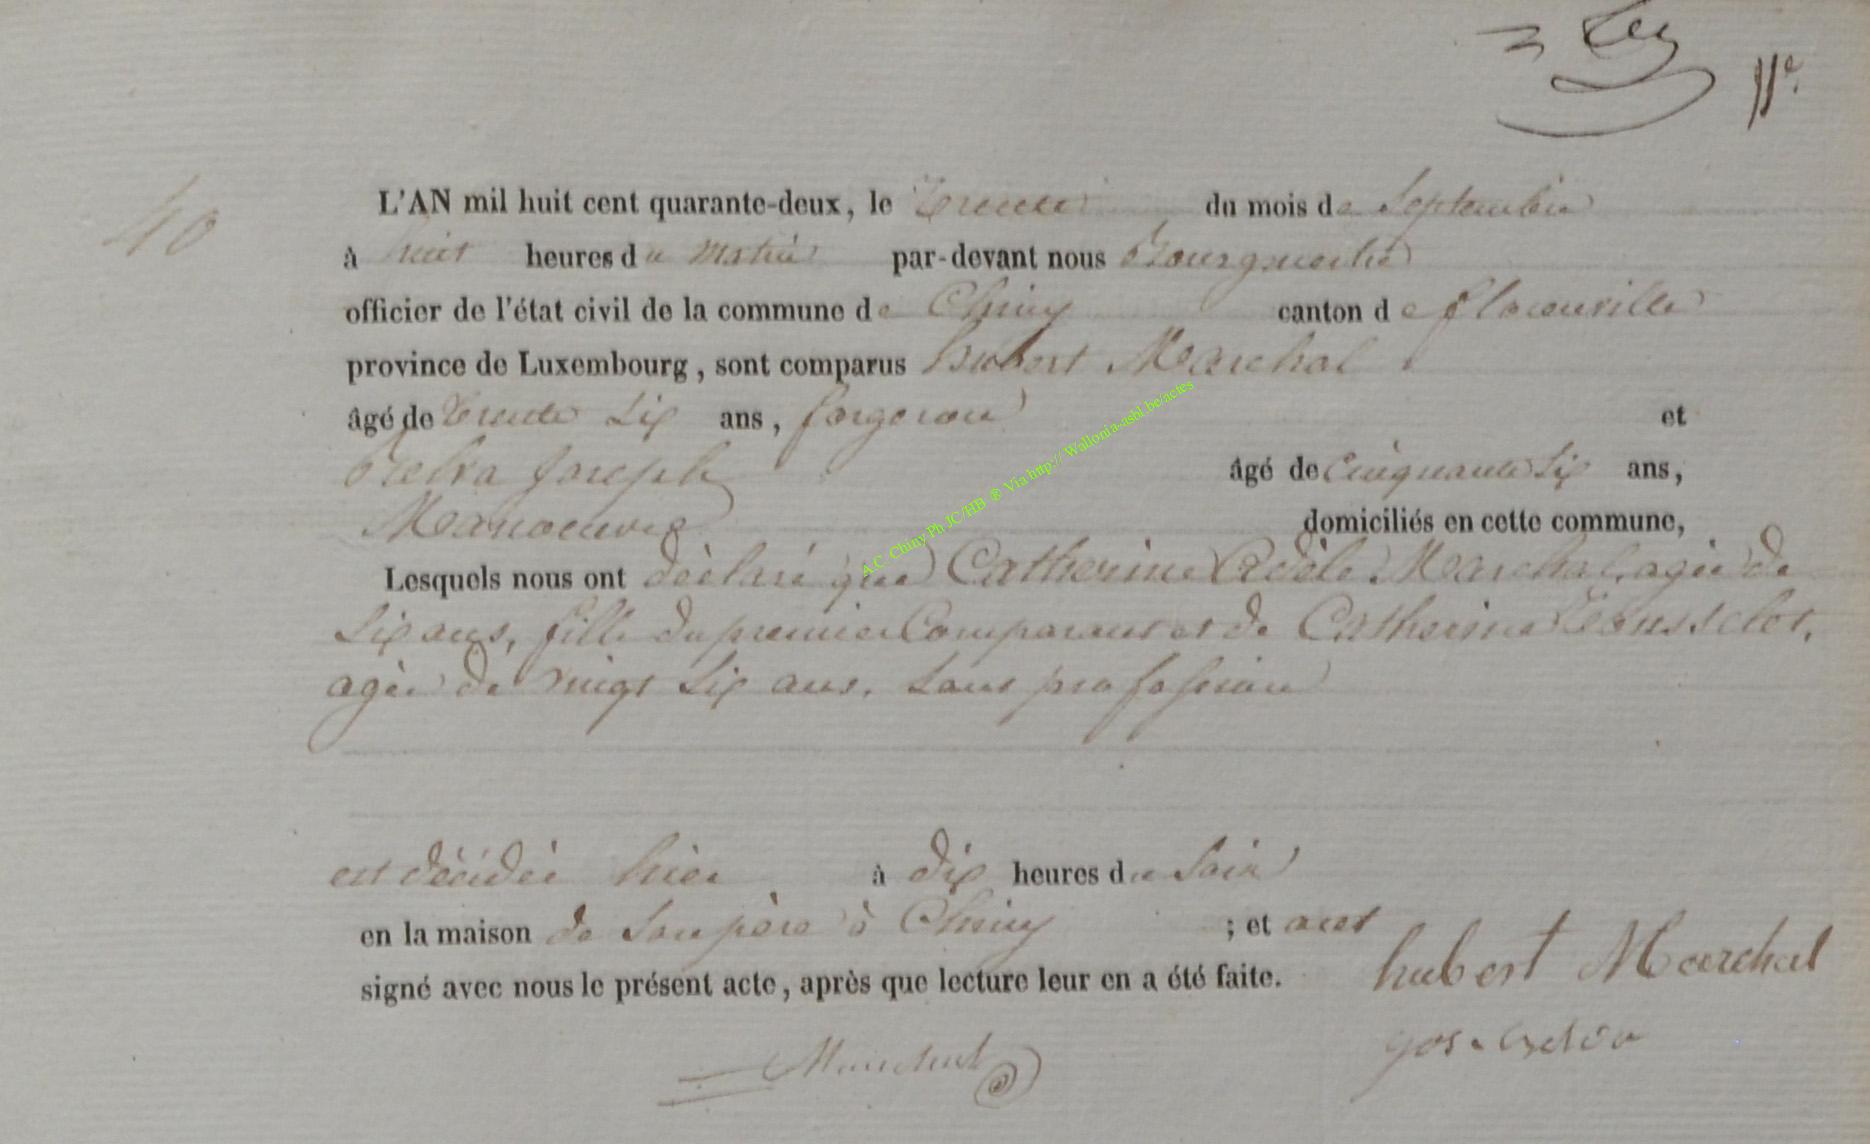 11e.
40
L'AN mil huit cent quarante-deux, le Trente du mois de Septembre
à huit heures du matin par-devant nous Bourgmestre
officier de l'état civil de la commune de Chiny canton de florenville
province de Luxembourg, sont comparus hubert Marchal
âgé de Trente Six ans, forgeron et
Joseph âgé de Cinquante Six ans,
Manoeuvre domiciliés en cette commune,
Lesquels nous ont déclaré que Catherine Adèle Marchal, agée de
Six ans, fille du premier Comparant et de Catherine
agée de vingt Six ans, Sans profession
est décédée hier à dix heures du Soir
en la maison de Son père à Chiny ; et ont
signé avec nous le présent acte, après que lecture leur en a été faite.
hubert Marchal
Marchal
A.C. Chiny Ph JC/HB ® Via http:// Wallonia-asbl.be/actes